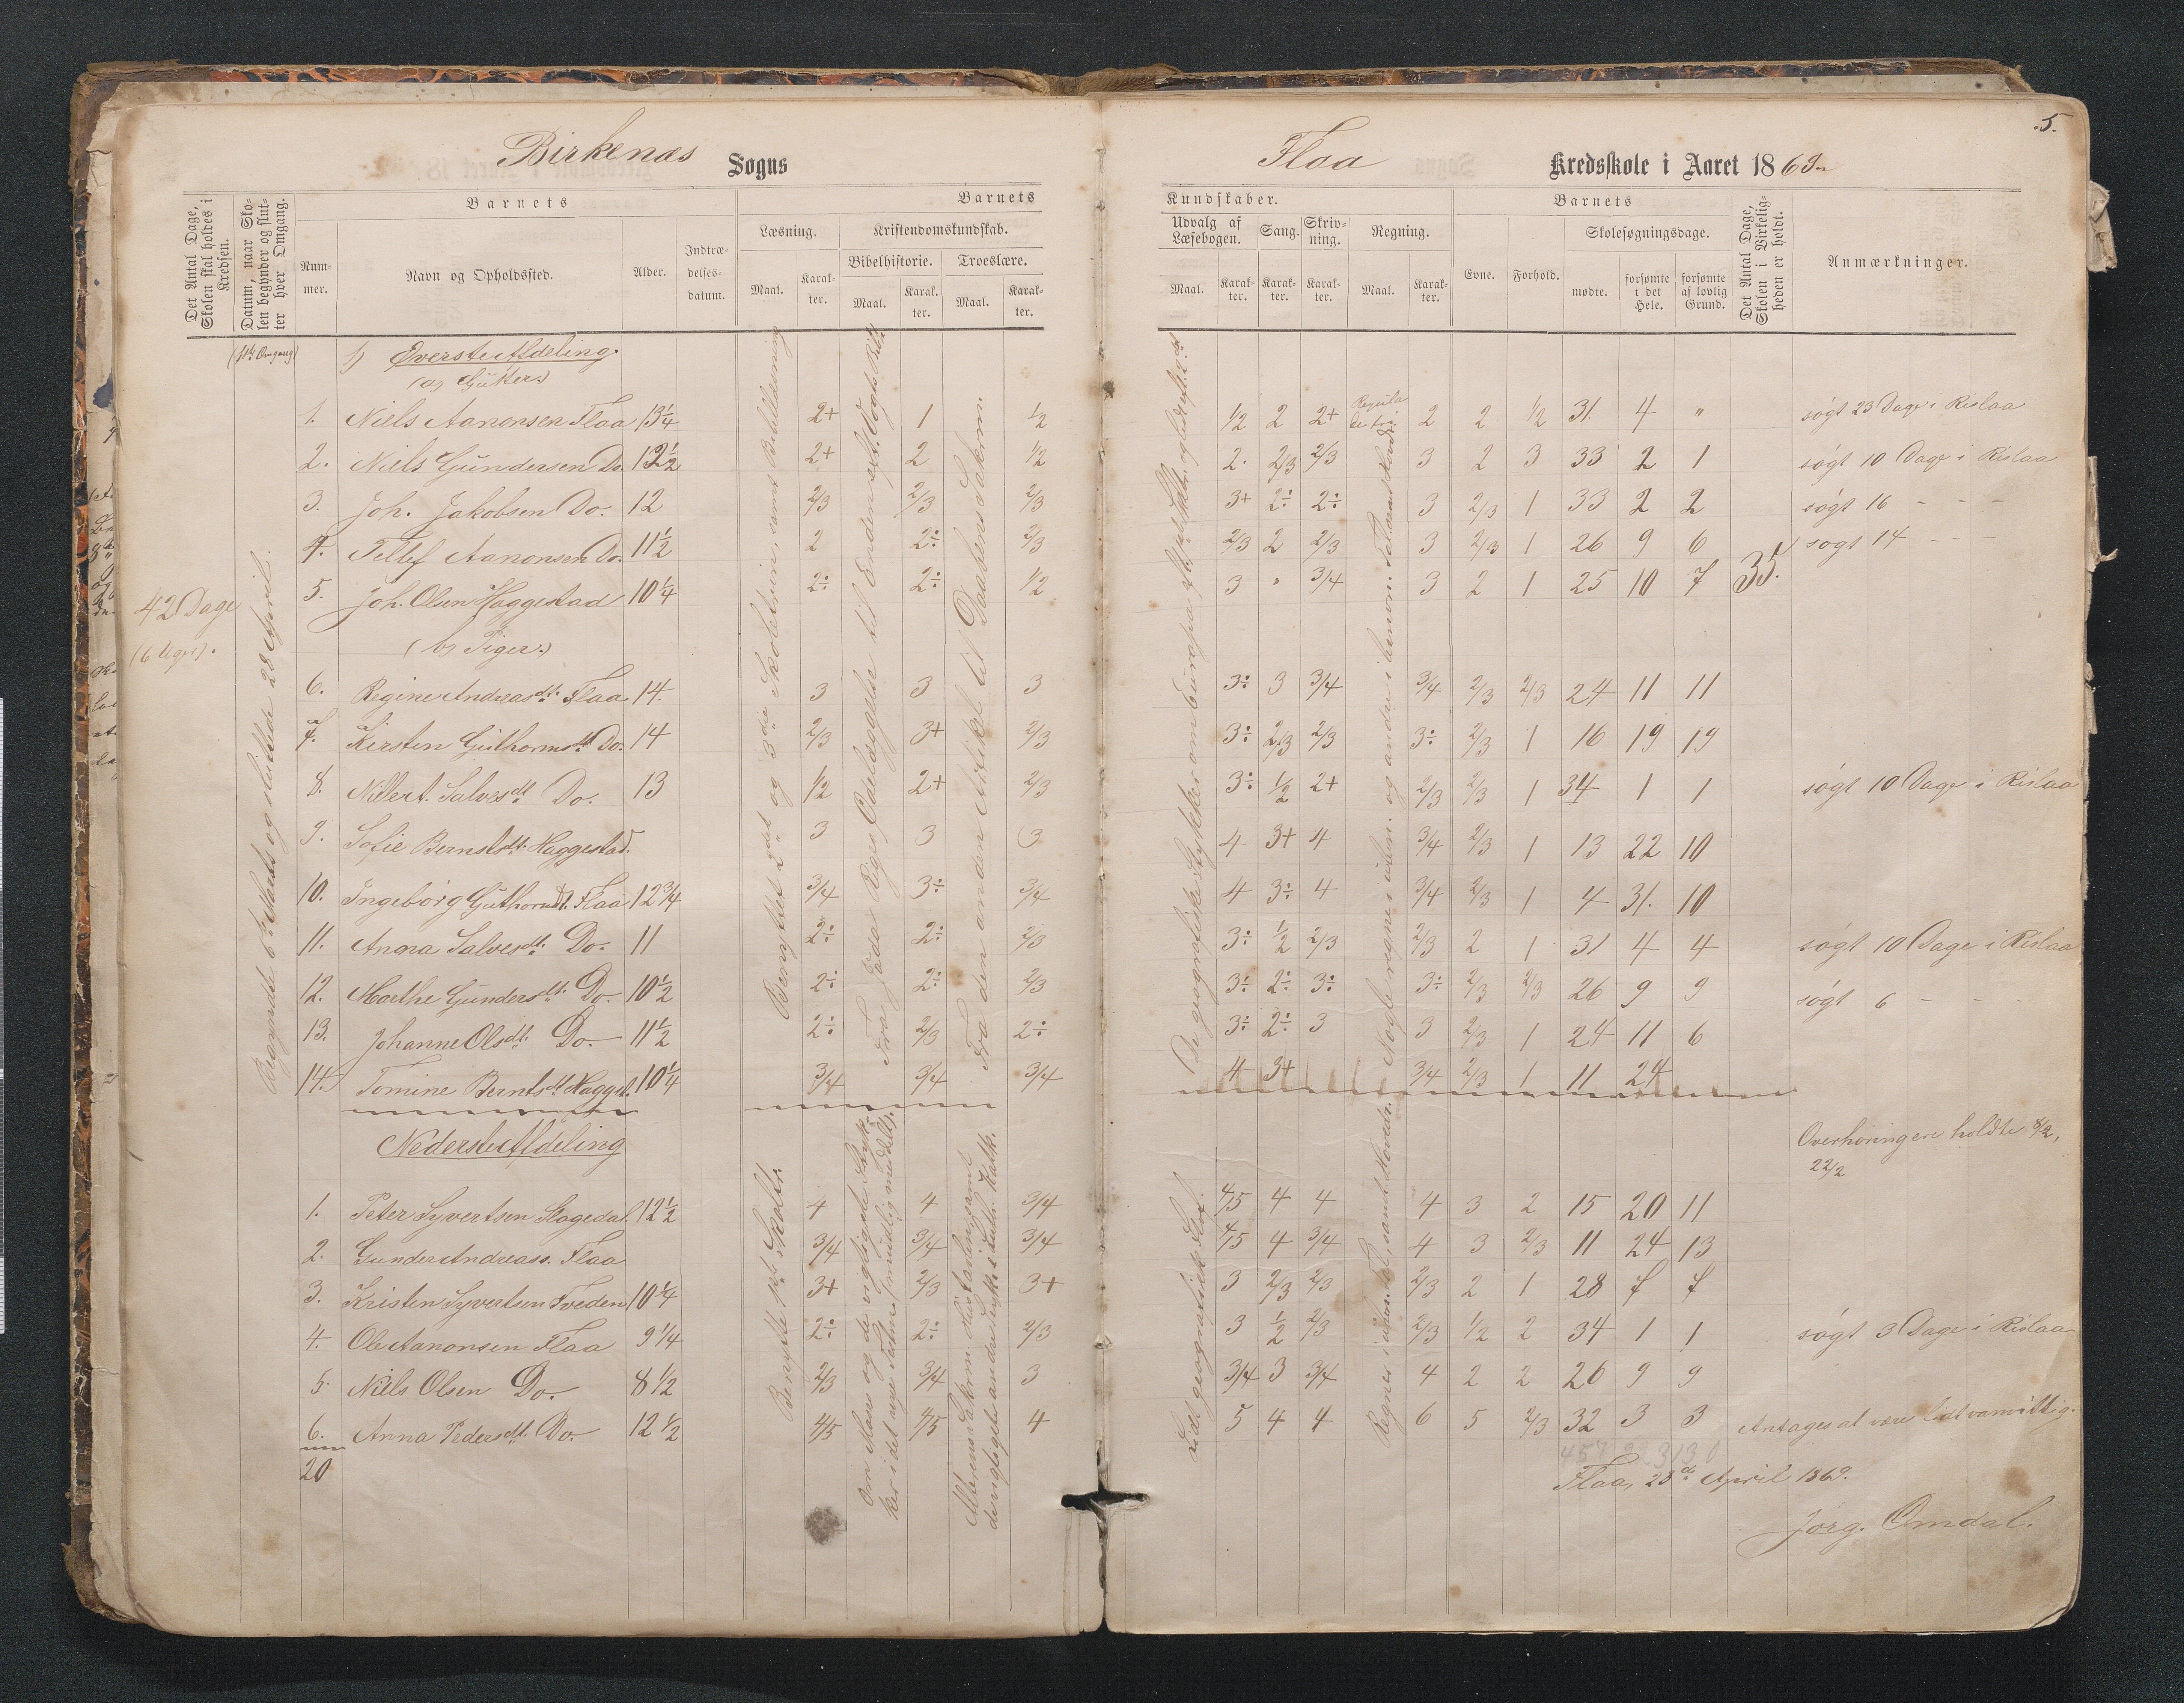 5.
Birkenæs Sogns
Flaa Kredsskole i Aaret 1869
Det Antal Dage, Skolen skal holdes i Kredsen.
Datum, naar Skolen begynder og slutter hver Omgang.
Barnets
Nummer.
Navn og Opholdssted.
Alder.
Indtrædelsesdatum.
Barnets
Læsning.
Maal.
Karakter.
Kristendomskundskab.
Bibelhistorie.
Maal.
Karakter.
Troeslære.
Maal.
Karakter.
Kundskaber.
Udvalg af Læsebogen.
Maal.
Karakter.
Sang.
Karakter.
Skrivning.
Karakter.
Regning.
Maal.
Karakter.
Barnets
Evne.
Forhold.
Skolesøgningsdage.
mødte.
forsømte i det Hele.
forsømte af lovlig Grund.
Det Antal Dage, Skolen i Virkeligheden er holdt.
Anmærkninger.
(1ste Omgang)
42 Dage
(6 Uger).
Begyndte 6te Marts og sluttede 28 April.
1) Øverste Afdeling.
(a) Gutter.)
1. Niels Aanonsen Flaa 13 1/4 2+ 1 1/2 1/2 2 2+ 2 2 1/2 31. 4 " søgt 23 Dage i Rislaa
2. Niels Gundersen Do. 12 1/2 2+ 2 1/2 2. 2/3 2/3 3 2 3 33 2 1 søgt 10 Dage i Rislaa
3. Joh. Jakobsen Do. 12 2/3 2/3 2/3 3+ 2÷ 2÷ 3 2/3 1 33 2 2 søgt 16 - - -
4. Tellef Aanonsen Do. 11 1/2 2 2÷ 2/3 2/3 2 2/3 3 2/3 1 26 9 6 søgt 14 - - -
5. Joh. Olsen Haggestad 10 1/4 2÷ 2÷ 1/2 3 " 3/4 3 2 1 25 10 7 35.
(b) Piger.)
6. Regine Andreasdt. Flaa 14. 3 3 3 3÷ 3 3/4 3/4 2/3 2/3 24 11 11
7. Kirsten Guthormsdt. Do. 14 2/3 3+ 2/3 3÷ 2/3 2/3 3÷ 2/3 1 16 19 19
8. Nillert. Salvesdt. Do. 13 1/2 2+ 2/3 3÷ 1/2 2+ 2/3 2/3 1 34 1 1 søgt 10 Dage i Rislaa
9. Sofie Berntsdt. Haggestad. 3 3 3 4 3+ 4 3/4 2/3 1 13 22 10
10. Ingeborg Guthormsdt. Flaa 12 3/4 3/4 3÷ 3/4 4 3÷ 4 3/4 2/3 1 4 31. 10
11. Anna Salvesdt. Do. 11 2÷ 2÷ 2/3 3÷ 1/2 2/3 2/3 2 1 31 4 4 søgt 10 Dage i Rislaa
12. Marthe Gundersdt. Do. 10 1/2 2÷ 2÷ 2/3 3÷ 2÷ 3÷ 3÷ 2/3 2/3 26 9 9 søgt 6 - - -
13. Johanne Olsdt. Do. 11 1/2 2÷ 2/3 2÷ 3÷ 2÷ 3 3 2/3 1 24 11 6
14. Tomine Berntsdt. Haggst. 10 1/4 3/4 3/4 3/4 4 3+ 3/4 2/3 1 11 24
Benyttet 2det og 3die Skoletrin, samt Bibellæsning
til Enden
Fra den anden Artikel til Daabens Sakrm.
De geografiske Stykker om Europa
Nederste Afdeling
Overhøringene holdte 8/2, 22/2
1. Peter Syvertsen Slogedal. 12 1/2 4 4 3/4 4/5 4 4 4 3 2 15 20 11
2. Gunder Andreass. Flaa 3/4 3/4 3/4 4/5 4 3/4 4 3 2/3 11 24 13
3. Kristen Syvertsen Tveden 10 1/4 3+ 2/3 3+ 3 2/3 2/3 2/3 2 1 28 7 7
4. Ole Aanonsen Flaa 9 1/4 2÷ 2÷ 2/3 3 1/2 2/3 2/3 1/2 2 34 1 1 søgt 3 Dage i Rislaa
5. Niels Olsen Do. 8 1/2 2/3 3/4 3 3/4 3 3/4 4 2 2 26 9 9
6. Anna Pedersdt. Do. 12 1/2 4/5 4/5 4 5 4 4 6 5 2/3 32 3 3 Antages at være lidt vanvittig.
20
Benytte 1ste Skoletr.
Lidt geografisk Stof.
Flaa, 28de April 1869.
Jørg. Omdal.